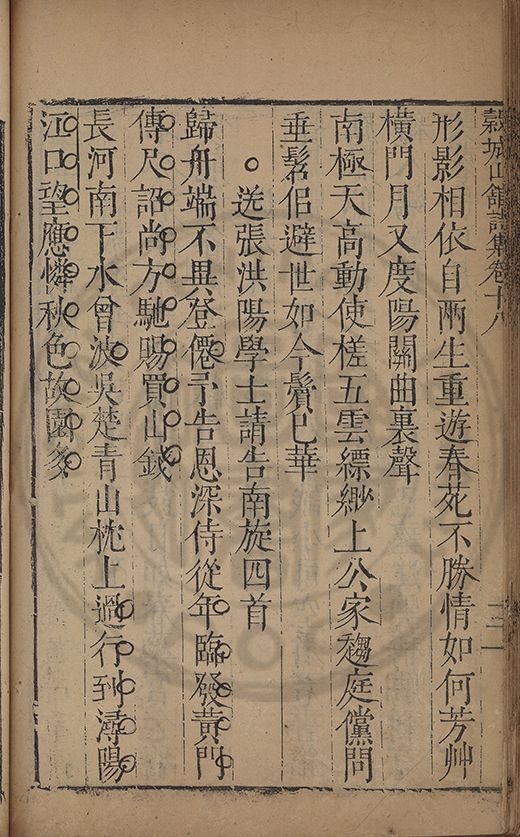 穀城山館詩集卷十八
形影相依自兩生重遊春苑不勝情如何芳艸
橫門月又度陽關曲裏聲
南極天高動使槎五雲縹緲上公家趨庭儻問
垂髫侶避世如今鬢已華
送張洪陽學士請告南旋四首
歸舟端不異登僊予告恩深侍從年臨發黃門
傳尺詔尚方馳賜買山錢
長河南下水曾波吳楚青山枕上過行到潯陽
江口望應憐秋色故園多